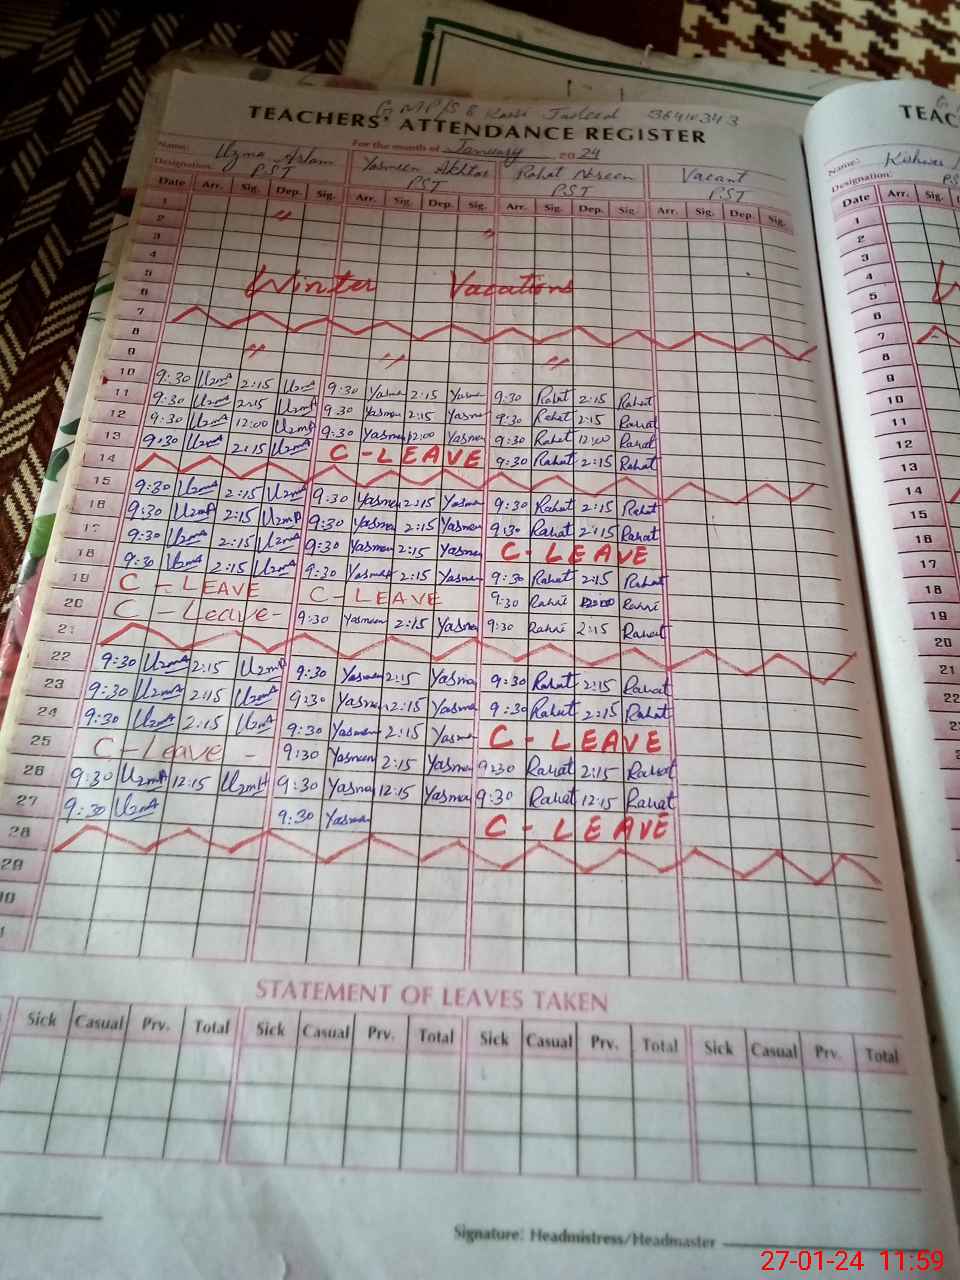 TEACHERS' ATTENDANCE REGISTER
36410343
For the month of January 2024
Name: Uzma Aslam Yasmeen Akhtar Rahat Nasreen Vacant
Designation: PST PST PST PST
Date Arr. Sig. Dep. Sig. Arr. Sig. Dep. Sig. Arr. Sig. Dep. Sig. Arr. Sig. Dep. Sig.
1
2 "
3 "
4
5
6 Winter Vacations
7
8
9 " " "
10 9:30 Uzma 2:15 Uzma 9:30 Yasme 2:15 Yasme 9:30 Rahat 2:15 Rahat
11 9:30 Uzma 2:15 Uzma 9:30 Yasme 2:15 Yasme 9:30 Rahat 2:15 Rahat
12 9:30 Uzma 12:00 Uzma 9:30 Yasmen 12:00 Yasme 9:30 Rahat 12:00 Rahat
13 9:30 Uzma 2:15 Uzma C - LEAVE 9:30 Rahat 2:15 Rahat
14
15 9:30 Uzma 2:15 Uzma 9:30 Yasmen 2:15 Yasme 9:30 Rahat 2:15 Rahat
16 9:30 Uzma 2:15 Uzma 9:30 Yasmen 2:15 Yasmen 9:30 Rahat 2:15 Rahat
17 9:30 Uzma 2:15 Uzma 9:30 Yasmen 2:15 Yasme C - LEAVE
18 9:30 Uzma 2:15 Uzma 9:30 Yasmen 2:15 Yasme 9:30 Rahat 2:15 Rahat
19 C - LEAVE C - LEAVE 9:30 Rahat 12:00 Rahat
20 C - Leave - 9:30 Yasmeen 2:15 Yasme 9:30 Rahat 2:15 Rahat
21
22 9:30 Uzma 2:15 Uzma 9:30 Yasmen 2:15 Yasme 9:30 Rahat 2:15 Rahat
23 9:30 Uzma 2:15 Uzma 9:30 Yasmen 2:15 Yasme 9:30 Rahat 2:15 Rahat
24 9:30 Uzma 2:15 Uzma 9:30 Yasmen 2:15 Yasme C - LEAVE
25 C - Leave - 9:30 Yasmeen 2:15 Yasme 9:30 Rahat 2:15 Rahat
26 9:30 Uzma 12:15 Uzma 9:30 Yasme 12:15 Yasme 9:30 Rahat 12:15 Rahat
27 9:30 Uzma 9:30 Yasme C - LEAVE
28
29
STATEMENT OF LEAVES TAKEN
Sick Casual Prv. Total Sick Casual Prv. Total Sick Casual Prv. Total Sick Casual Prv. Total
Signature: Headmistress/Headmaster
Name: Kishwar
Designation:
Date Arr. Sig.
1
2
3
4
5
6
7
8
9
10
11
12
13
14
15
16
17
18
19
20
21
22
27-01-24 11:59